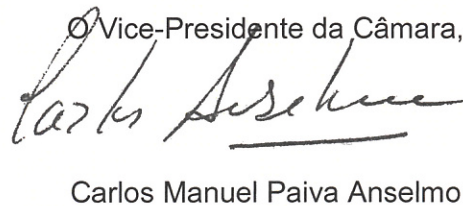 O Vice-Presidente da Câmara,
Carlos Anselmo
Carlos Manuel Paiva Anselmo